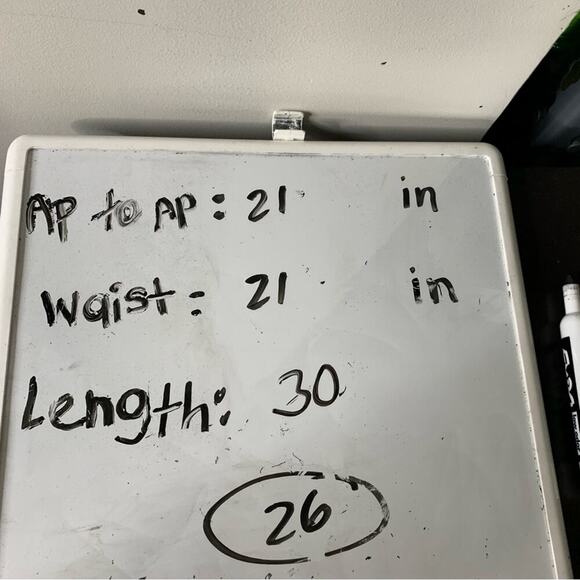 AP to AP: 21 in
Waist: 21 in
Length: 30
26
EXPO